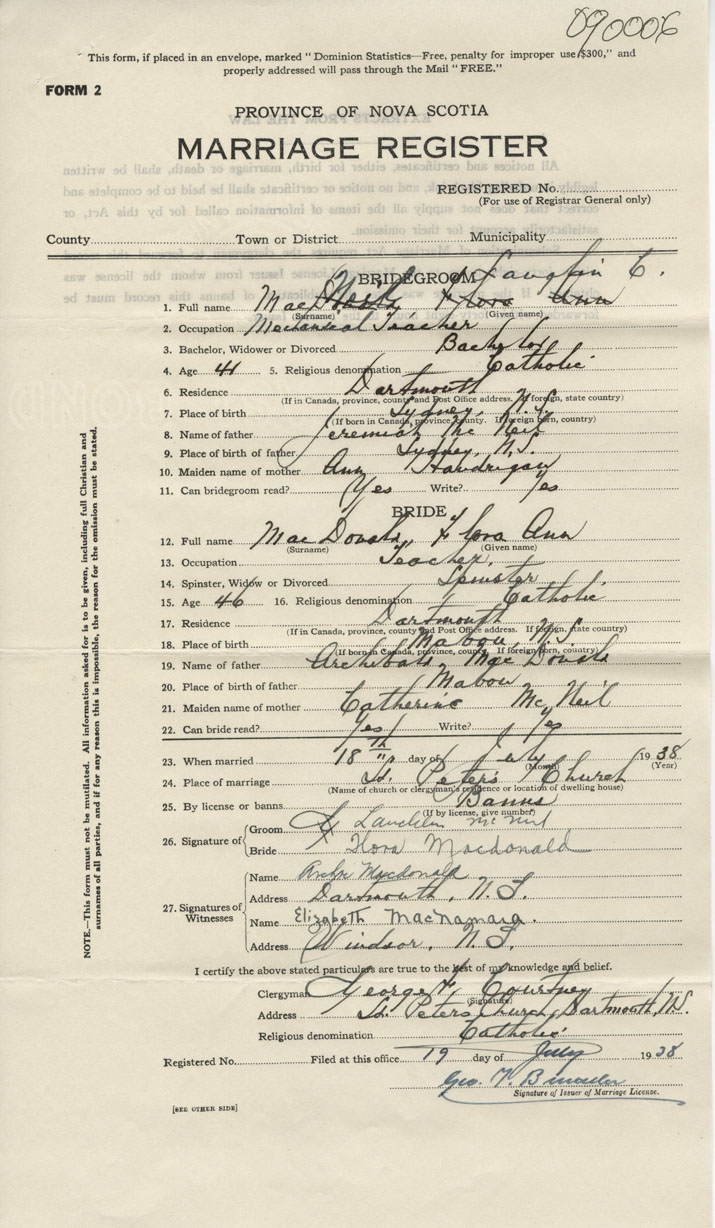 090006
This form, if placed in an envelope, marked "Dominion Statistics—Free, penalty for improper use $300," and
properly addressed will pass through the Mail "FREE."
FORM 2
PROVINCE OF NOVA SCOTIA
MARRIAGE REGISTER
REGISTERED No.
(For use of Registrar General only)
County Town or District Municipality
BRIDEGROOM Lauglin C.
1. Full name Mac Flora Ann
(Surname) (Given name)
2. Occupation Mechanical Teacher
3. Bachelor, Widower or Divorced Bachelor
4. Age 41 5. Religious denomination Catholic
6. Residence Dartmouth
(If in Canada, province, county and Post Office address. If foreign, state country)
7. Place of birth Sydney, N.S.
(If born in Canada, province, county. If foreign born, country)
8. Name of father Jeremiah Mc Neil
9. Place of birth of father Sydney, N.S.
10. Maiden name of mother Ann Handrigan
11. Can bridegroom read? Yes Write? Yes
BRIDE
12. Full name Mac Donald, Flora Ann
(Surname) (Given name)
13. Occupation Teacher.
14. Spinster, Widow or Divorced Spinster
15. Age 46 16. Religious denomination Catholic
17. Residence Dartmouth
(If in Canada, province, county and Post Office address. If foreign, state country)
18. Place of birth Mabou, N.S.
(If born in Canada, province, county. If foreign born, country)
19. Name of father Archibald Mac Donald
20. Place of birth of father Mabou
21. Maiden name of mother Catherine Mc Neil
22. Can bride read? Yes Write? Yes
23. When married 18 th day of July 1938
(Month) (Year)
24. Place of marriage St. Peter's Church
(Name of church or clergyman's residence or location of dwelling house)
25. By license or banns Banns
(If by license, give number)
26. Signature of
Groom Lauchlin McNeil
Bride Flora Macdonald
27. Signatures of Witnesses
Name Macdonald
Address Dartmouth, N.S.
Name Elizabeth MacNamara.
Address Windsor, N.S.
I certify the above stated particulars are true to the best of my knowledge and belief.
Clergyman George F. Courtney
(Signature)
Address St. Peters Church, Dartmouth, N.S.
Religious denomination Catholic
Registered No. Filed at this office 19 day of July 1938
Geo.
Signature of Issuer of Marriage License.
[SEE OTHER SIDE]
NOTE.—This form must not be mutilated. All information asked for is to be given, including full Christian and
surnames of all parties, and if for any reason this is impossible, the reason for the omission must be stated.